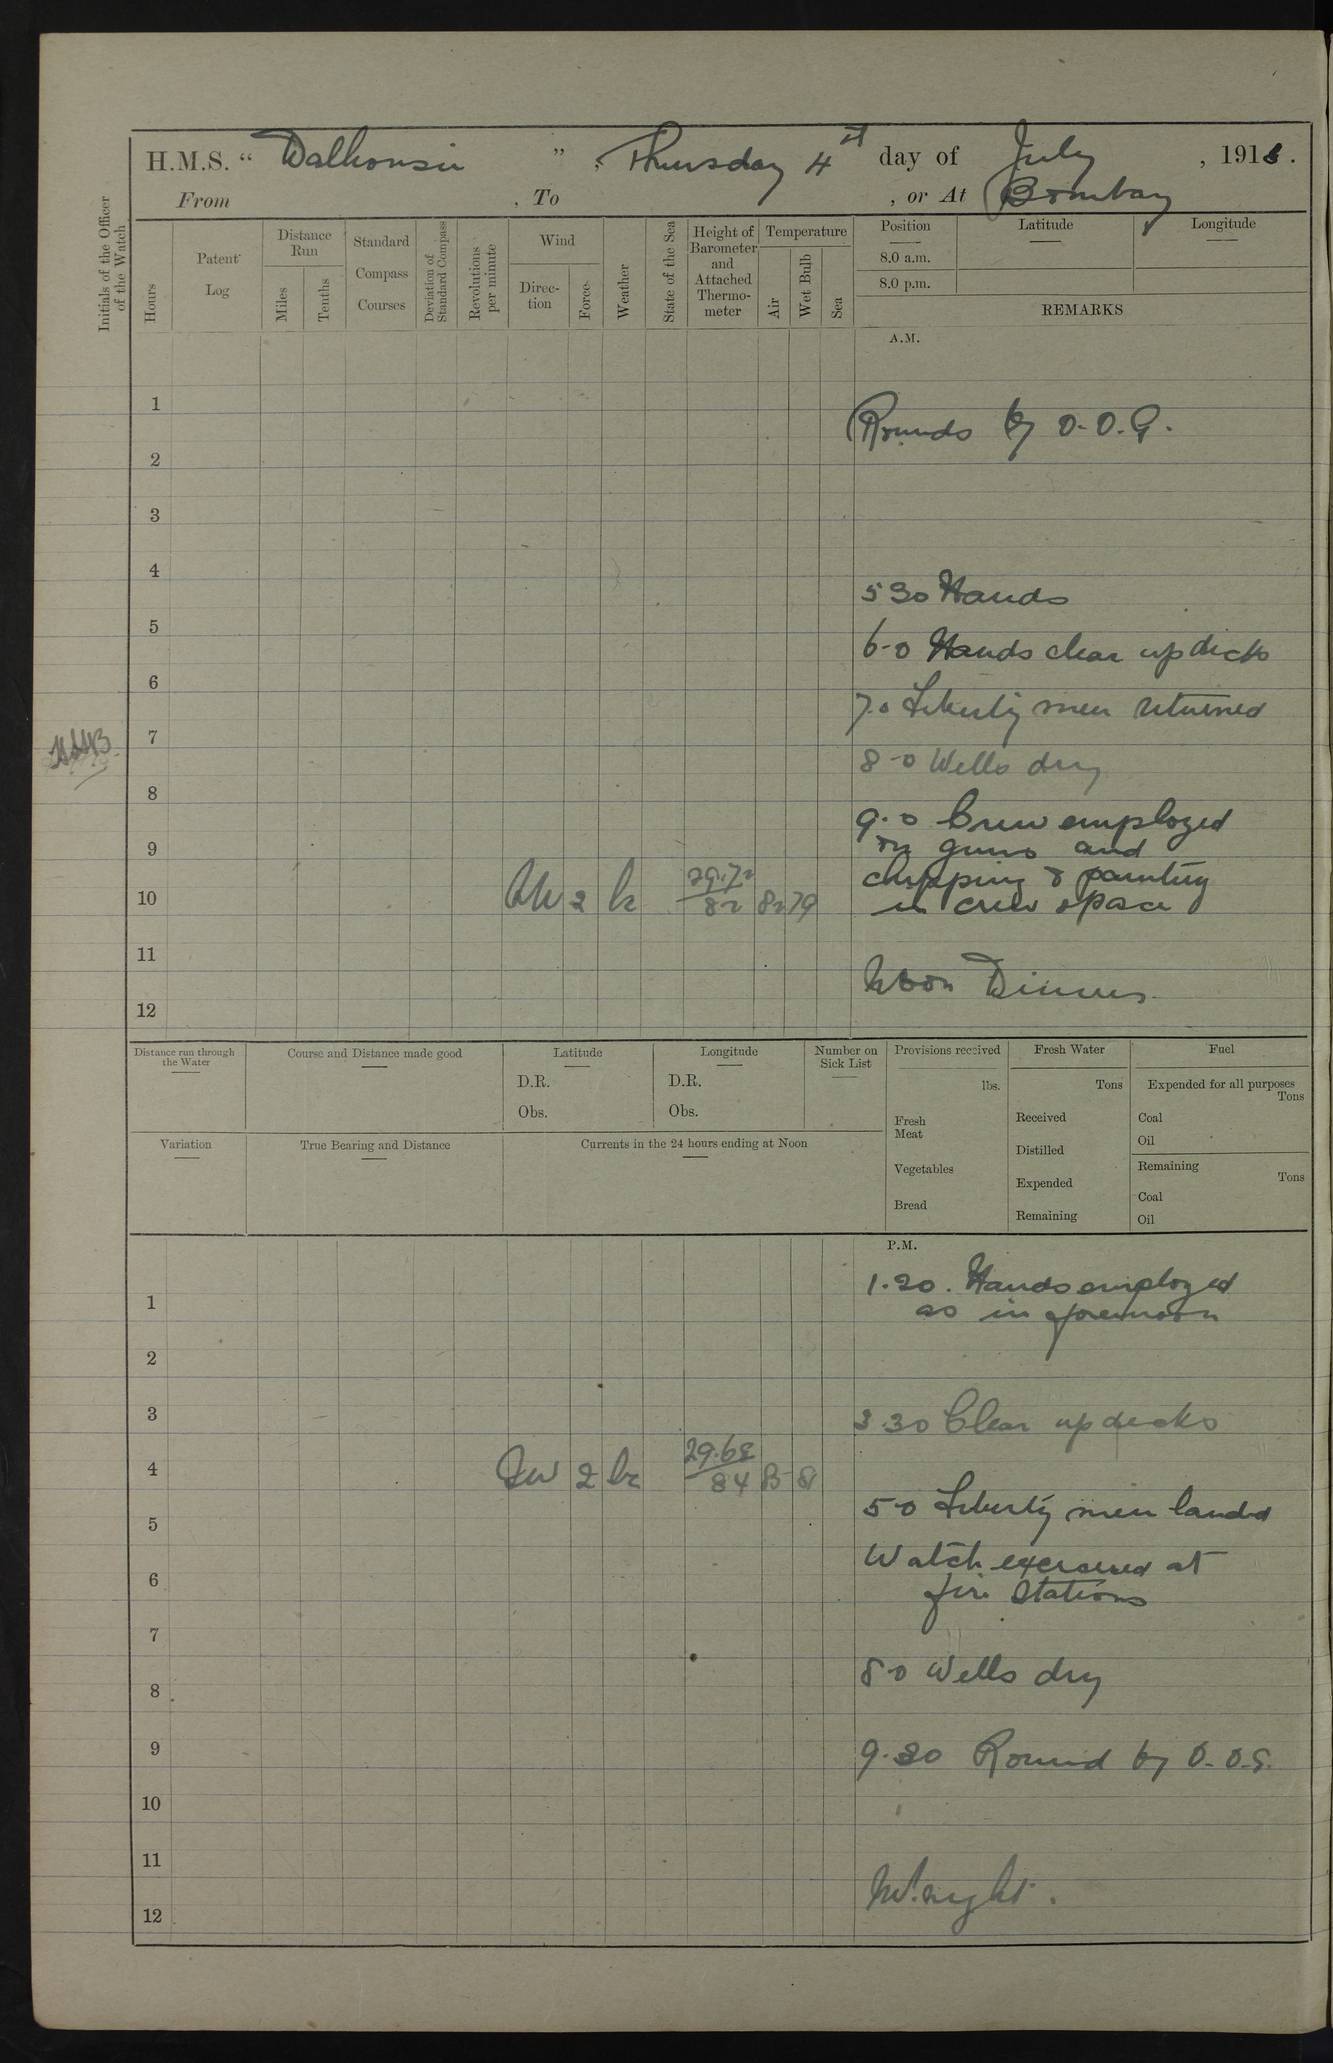 H.M.S. "Dalhousie", Thursday 4th day of July, 1918.
From , To , or At Bombay
Initials of the Officer of the Watch
Hours
Patent Log
Distance Run
Miles
Tenths
Standard Compass Courses
Deviation of Standard Compass
Revolutions per minute
Wind
Direction
Force
Weather
State of the Sea
Height of Barometer and Attached Thermometer
Temperature
Air
Wet Bulb
Sea
Position
8.0 a.m.
8.0 p.m.
Latitude
Longitude
REMARKS
A.M.
1
Rounds by O.O.G.
2
3
4
530 Hands
5
6-0 Hands clear up decks
6
7.0 Liberty men returned
7
8-0 Wells dry
8
9.0 Crew employed
9
on guns and
chipping & painting
10 2 bc 29.72 82 82 79
in crew space
11
Noon Dinner
12
Distance run through the Water
Course and Distance made good
Latitude
D.R.
Obs.
Longitude
D.R.
Obs.
Number on Sick List
Provisions received
lbs.
Fresh Meat
Vegetables
Bread
Fresh Water
Tons
Received
Distilled
Expended
Remaining
Fuel
Expended for all purposes
Tons
Coal
Oil
Remaining
Tons
Coal
Oil
Variation
True Bearing and Distance
Currents in the 24 hours ending at Noon
P.M.
1.20. Hands employed
1
as in forenoon
2
3
3.30 Clear up decks
4 SW 2 bc 29.68 84 85 81
5-0 Liberty men landed
5
Watch exercised at
6
fire Stations
7
8-0 Wells dry
8
9
9.30 Round by O.O.G.
10
11
M.night.
12